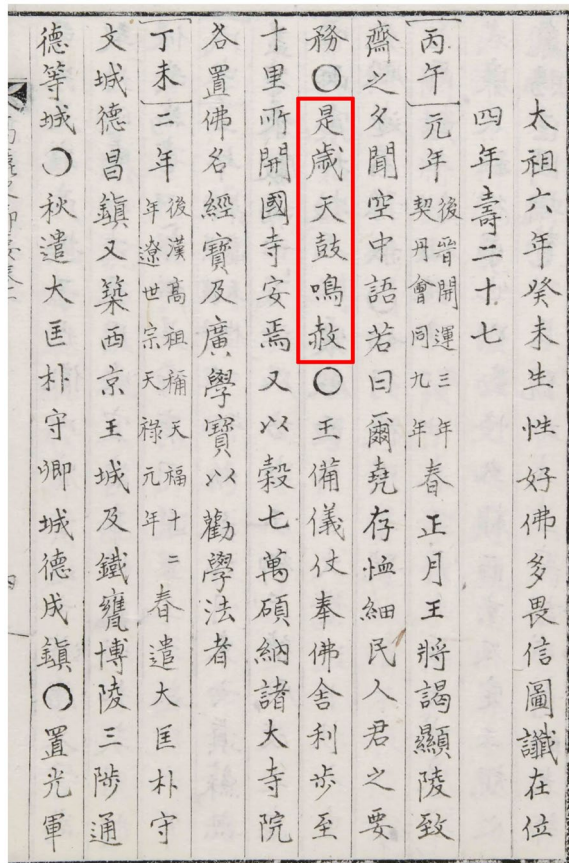 太祖六年癸未生性好佛多畏信圖讖在位
四年壽二十七
丙午元年後晉開運三年契丹會同九年春正月王將謁顯陵致
齋之夕聞空中語若曰爾堯存恤細民人君之要
務○是歲天鼓鳴赦○王備儀仗奉佛舍利步至
十里所開國寺安焉又以穀七萬碩納諸大寺院
各置佛名經寶及廣學寶以勸學法者
丁未二年後漢高祖稱天福十二年遼世宗天祿元年春遣大匡朴守
文城德昌鎮又築西京王城及鐵甕博陵三陟通
德等城○秋遣大匡朴守卿城德成鎮○置光軍